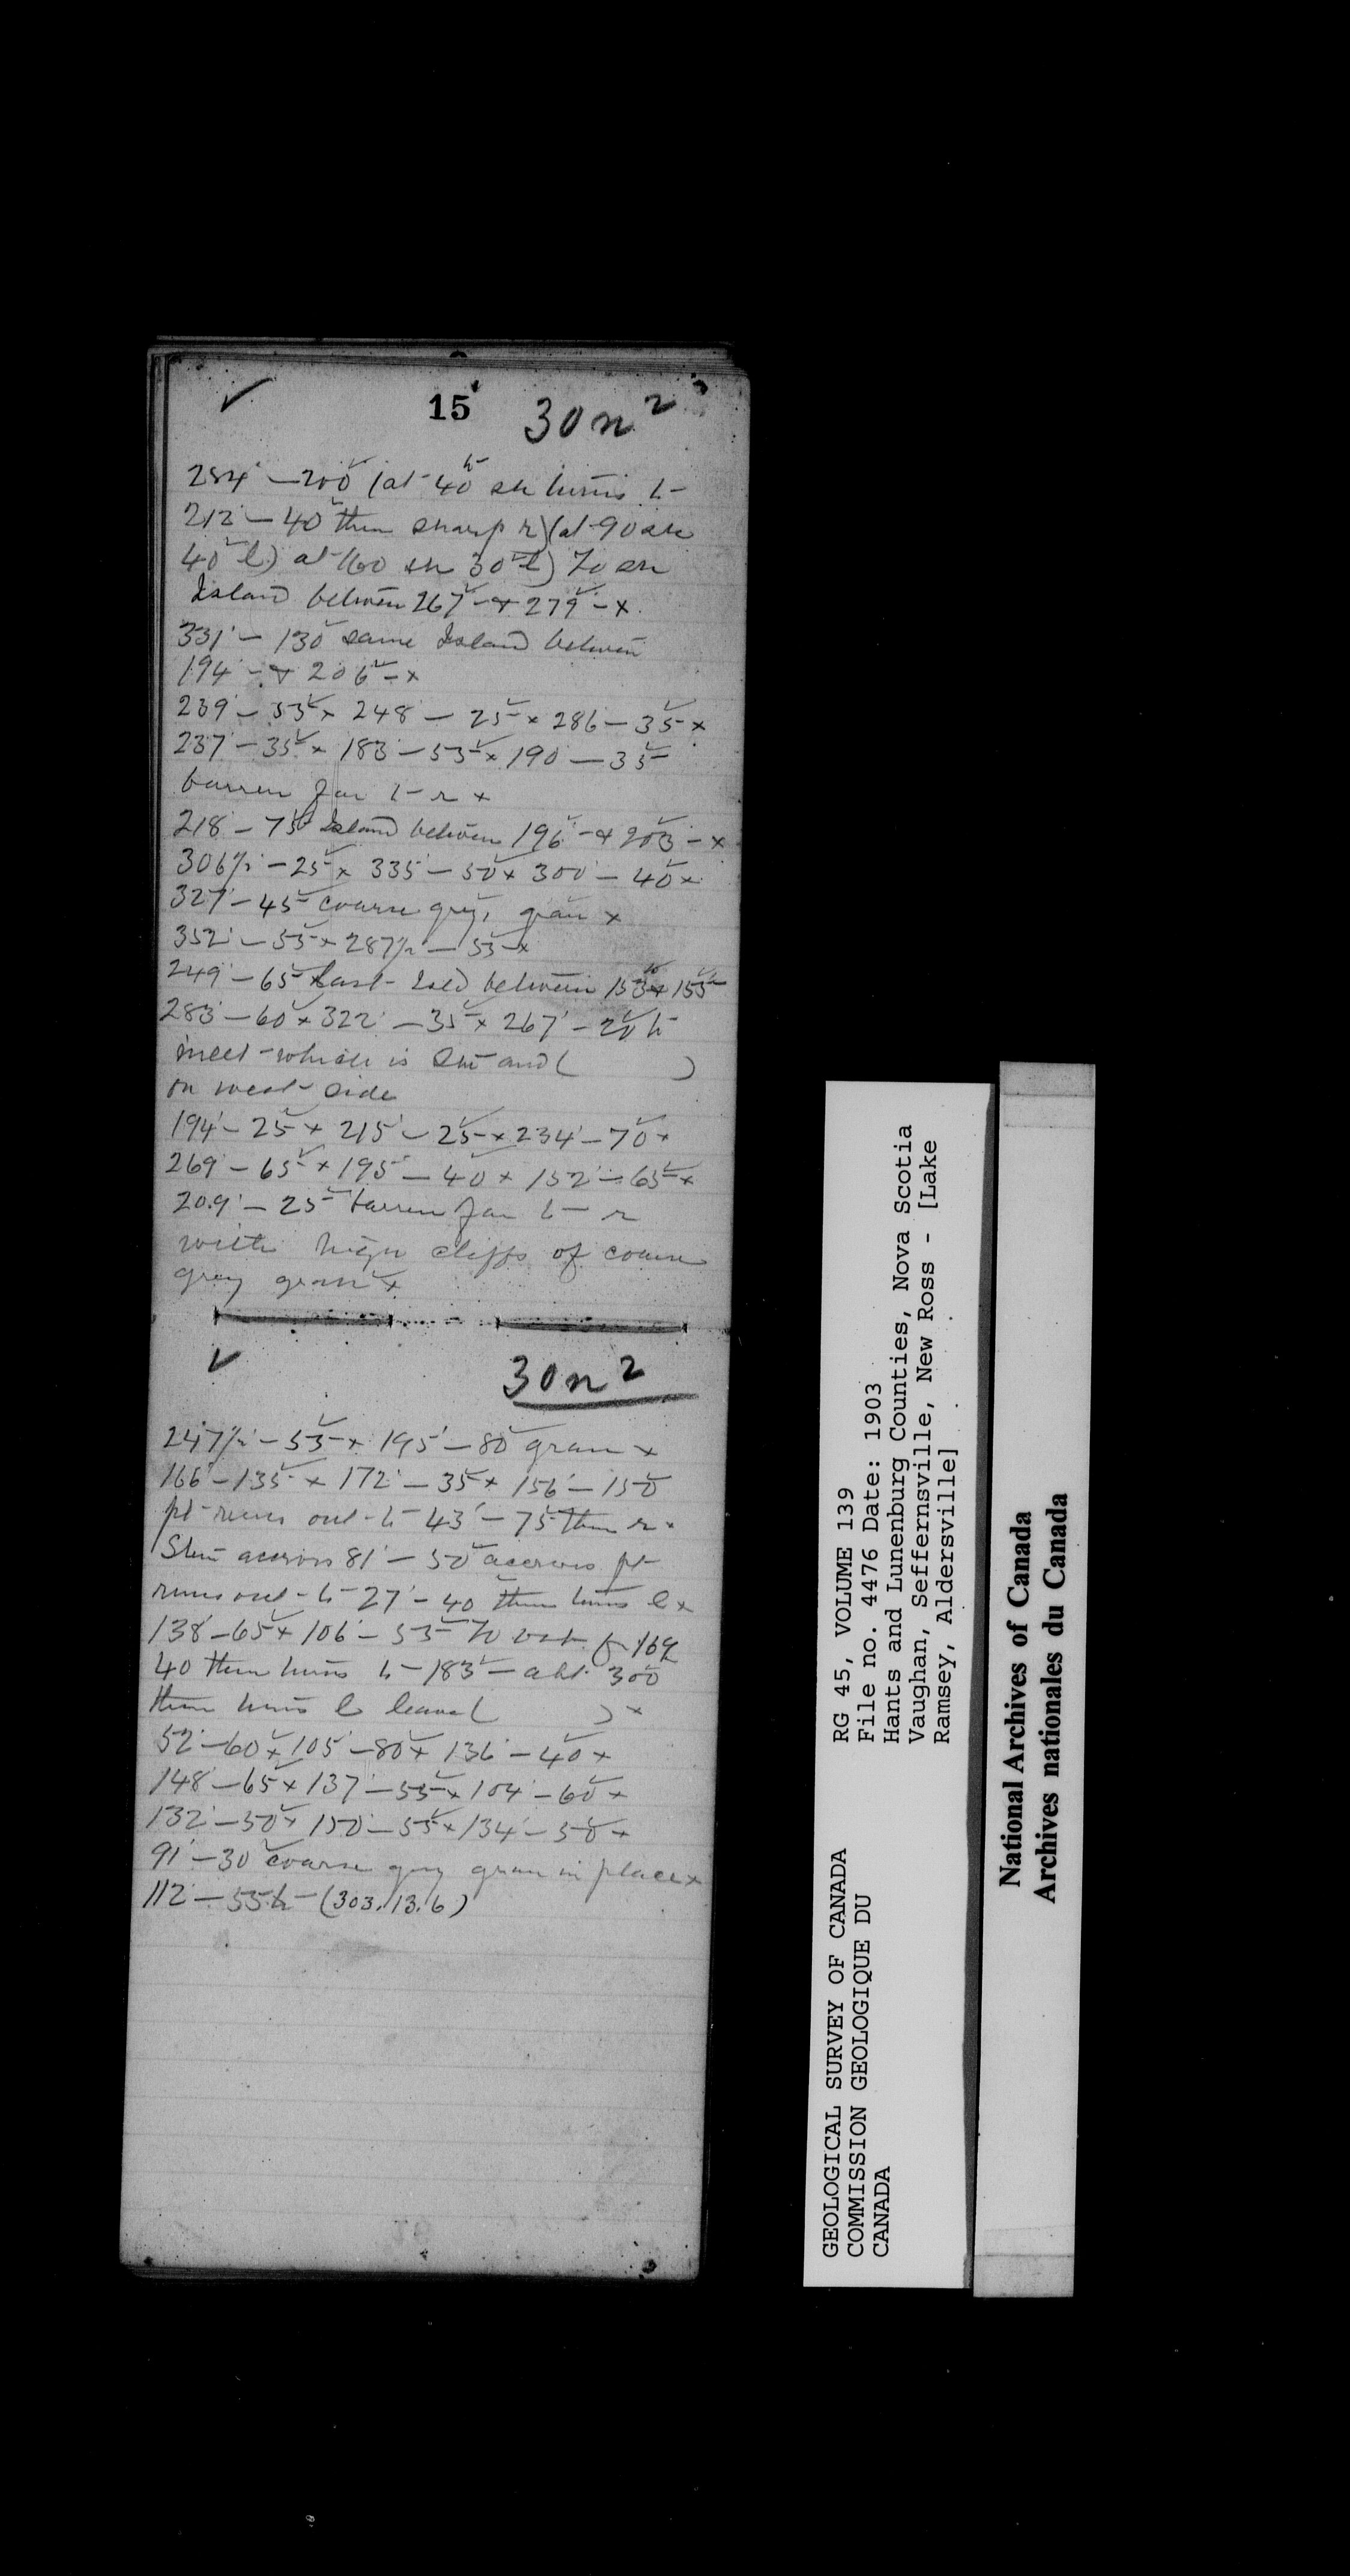 15
30 n²
284 — 200 (at 40 sh turns to
212 — 40 then sharp r) (at 90 sh
40 l) at 160 sh 30 l) To sh
Island between 267 - & 279 - x
331 — 130 same Island between
194 - & 206 - x
239 — 55 x 248 — 25 x 286 — 35 x
237 — 35 x 183 — 55 x 190 — 35
barren far to r x
218 — 75 Island between 196 - & 203 - x
306½ — 25 x 335 — 50 x 300 — 40 x
327 — 45 coarse grey gran x
352 — 55 x 287½ — 55 x
249 — 65 x last Isld between 153 & 155
283 — 60 x 322 — 35 x 267 — 20 to
meet which is and ( )
on west side
194 — 25 x 215 — 25 x 234 — 70 x
269 — 65 x 195 — 40 x 152 — 65 x
209 — 25 barren far to r
with high cliffs of coarse
grey gran x
30 n²
247½ — 55 x 195 — 80 gran x
166 — 135 x 172 — 35 x 156 — 150
pt runs out to 43 — 75 then r.
across 81 — 50 across pt
runs out to 27 — 40 then turns l x
138 — 65 x 106 — 55 To 169
40 then turns to 183 — abt 300
then turns l leave ( ) x
52 — 60 x 105 — 80 x 136 — 40 x
148 — 65 x 137 — 55 x 104 — 60 x
132 — 50 x 150 — 55 x 134 — 50 x
91 — 30 coarse grey gran in place x
112 — 55 to (303.13.6)
GEOLOGICAL SURVEY OF CANADA
COMMISSION GEOLOGIQUE DU
CANADA
RG 45, VOLUME 139
File no. 4476 Date: 1903
Hants and Lunenburg Counties, Nova Scotia
Vaughan, Seffernsville, New Ross - [Lake
Ramsey, Aldersville]
National Archives of Canada
Archives nationales du Canada